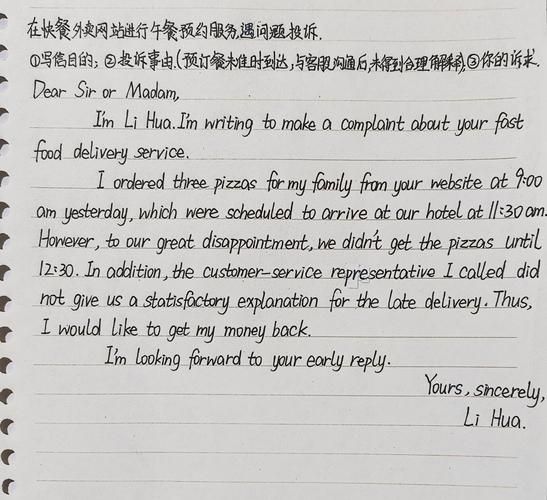 在快餐外卖网站进行午餐预约服务,遇问题投诉.
①写信目的; ②投诉事由.(预订餐未准时到达,与客服沟通后,未得到合理解释),③你的诉求.
Dear Sir or Madam,
I'm Li Hua. I'm writing to make a complaint about your fast
food delivery service.
I ordered three pizzas for my family from your website at 9:00
am yesterday, which were scheduled to arrive at our hotel at 11:30 am.
However, to our great disappointment, we didn't get the pizzas until
12:30. In addition, the customer-service representative I called did
not give us a statisfactory explanation for the late delivery. Thus,
I would like to get my money back.
I'm looking forward to your early reply.
Yours, sincerely,
Li Hua.